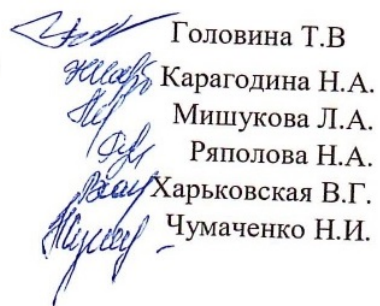 Головина Т.В
Карагодина Н.А.
Мишукова Л.А.
Ряполова Н.А.
Харьковская В.Г.
Чумаченко Н.И.